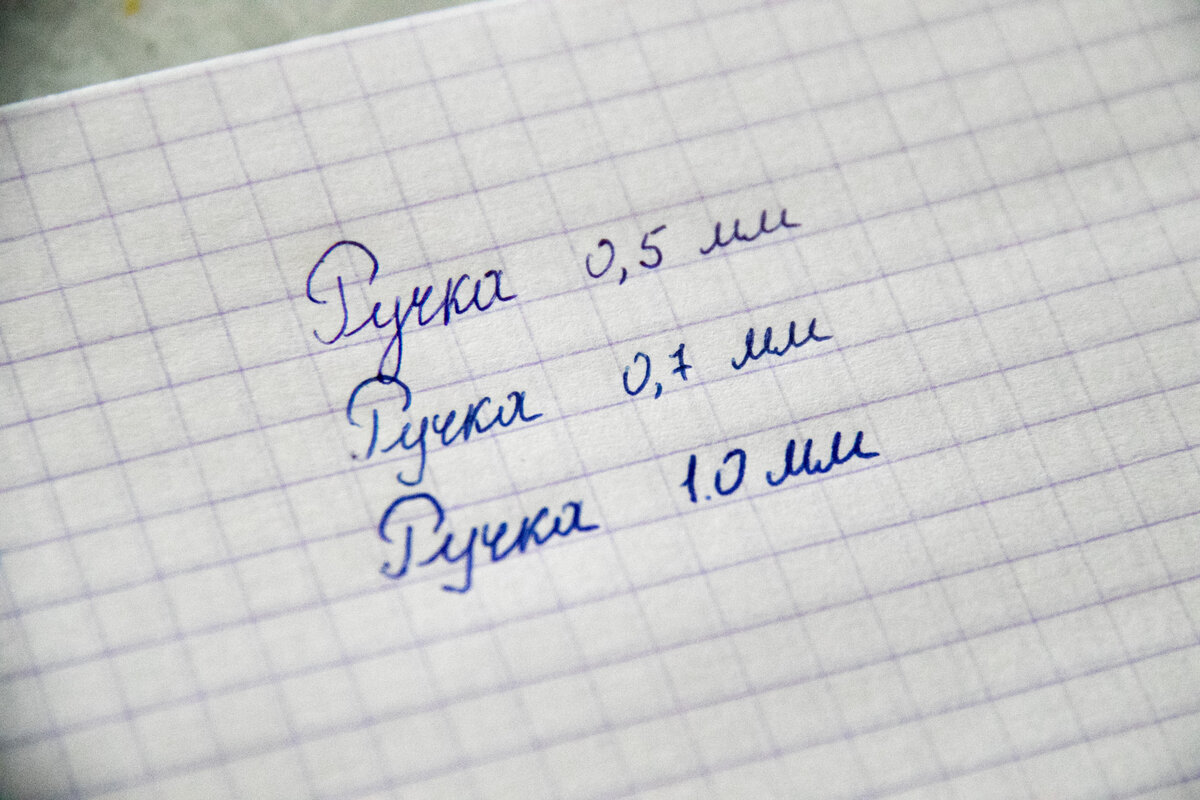 Ручка 0,5 мм
Ручка 0,7 мм
Ручка 1.0 мм